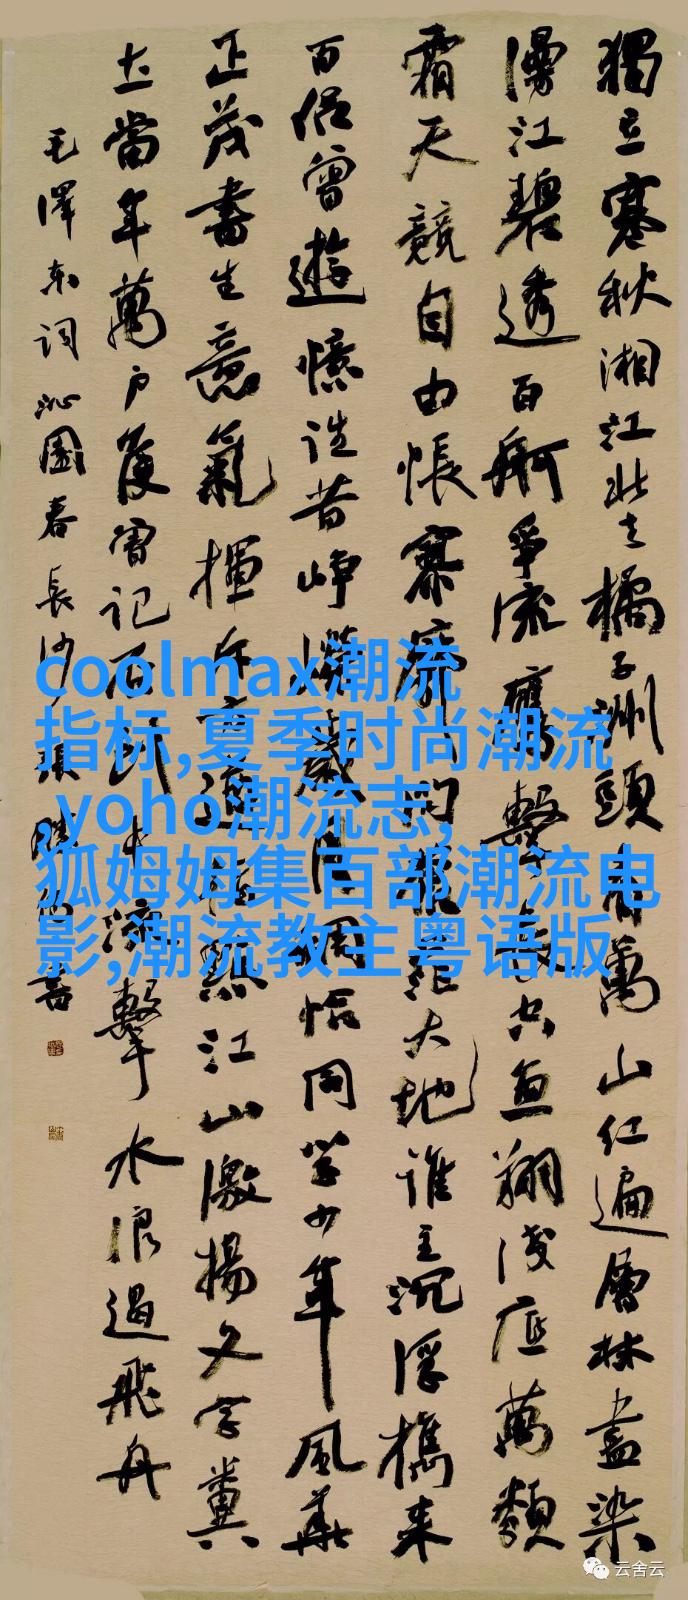 獨立寒秋湘江北去橘子洲頭看萬山红遍層林盡染
漫江碧透百舸爭流鷹擊長空魚翔淺底萬類
霜天競自由悵寥廓问蒼茫大地誰主沉浮攜来
百侶曾遊憶往昔崢嶸歲月稠恰同学少年風華
正茂書生意氣揮斥方遒指點江山激揚文字糞
土當年萬户侯曾记否到中流擊水浪遏飛舟
毛澤东词沁園春長沙
coolmax潮流
指标,夏季时尚潮流
,yoho潮流志,
狐姆姆集百部潮流电
影,潮流教主粤语版
云舍云